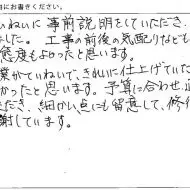 由にお書きください。
いねいに事前説明をしていただき、
ました。工事の前後の気配りなども
態度もよかったと思います。
業がていねいで、きれいに仕上げていた
かったと思います。予算に合わせ、
だき、細かい点にも留意して、修
謝しています。